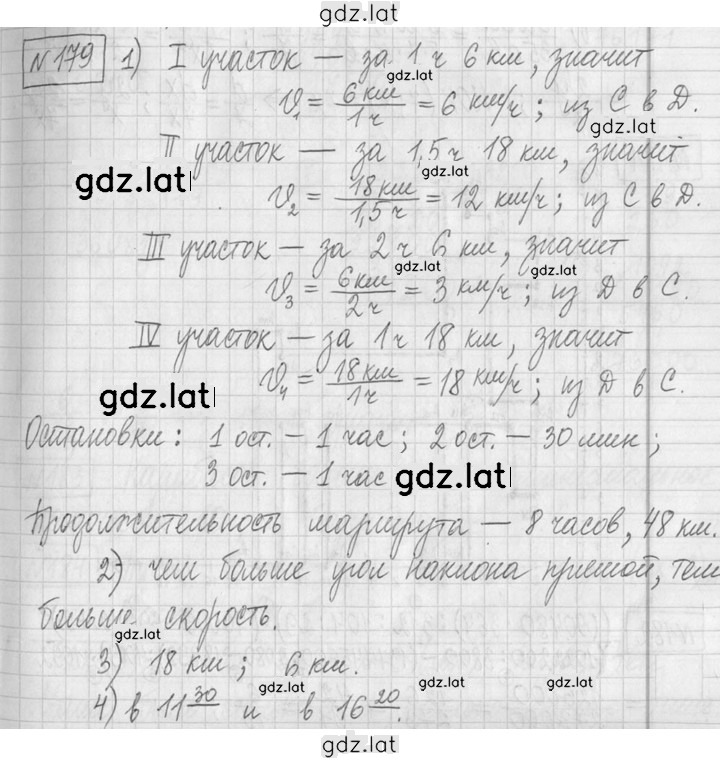 gdz.lat
№179 1) I участок — за 1 ч 6 км, значит
gdz.lat
V₁ = 6 км / 1 ч = 6 км/ч; из С в Д.
gdz.lat
II участок — за 1,5 ч 18 км, значит
gdz.lat gdz.lat
V₂ = 18 км / 1,5 ч = 12 км/ч; из С в Д.
III участок — за 2 ч 6 км, значит
gdz.lat gdz.lat
V₃ = 6 км / 2 ч = 3 км/ч; из Д в С.
IV участок — за 1 ч 18 км, значит
gdz.lat gdz.lat
V₄ = 18 км / 1 ч = 18 км/ч; из Д в С.
Остановки: 1 ост. — 1 час; 2 ост. — 30 мин;
3 ост. — 1 час gdz.lat
Продолжительность маршрута — 8 часов, 48 км.
2) чем больше угол наклона прямой, тем
больше скорость.
gdz.lat
3) 18 км; 6 км.
gdz.lat gdz.lat gdz.lat
4) в 11 30 и в 16 20.
gdz.lat